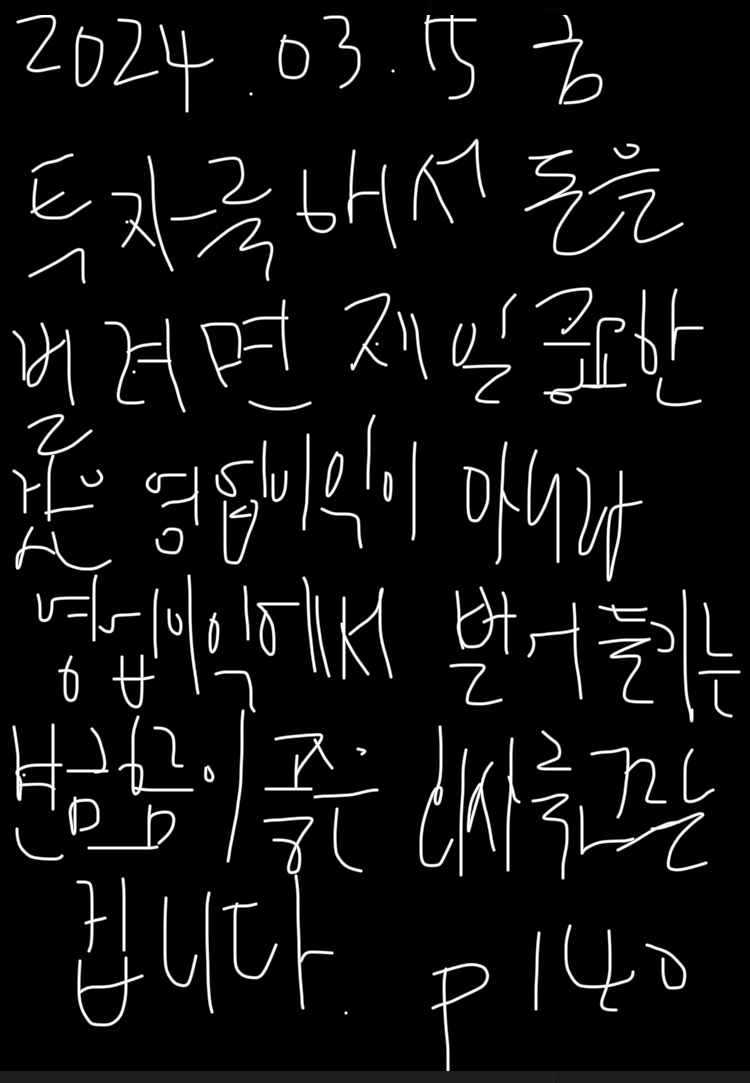 2024.03.15 금
투자를 해서 돈을
벌려면 제일 중요한
것은 영업이익이 아니라
영업이익에서 벌어들이는
현금흐름이 좋은 회사를
겁니다. p140